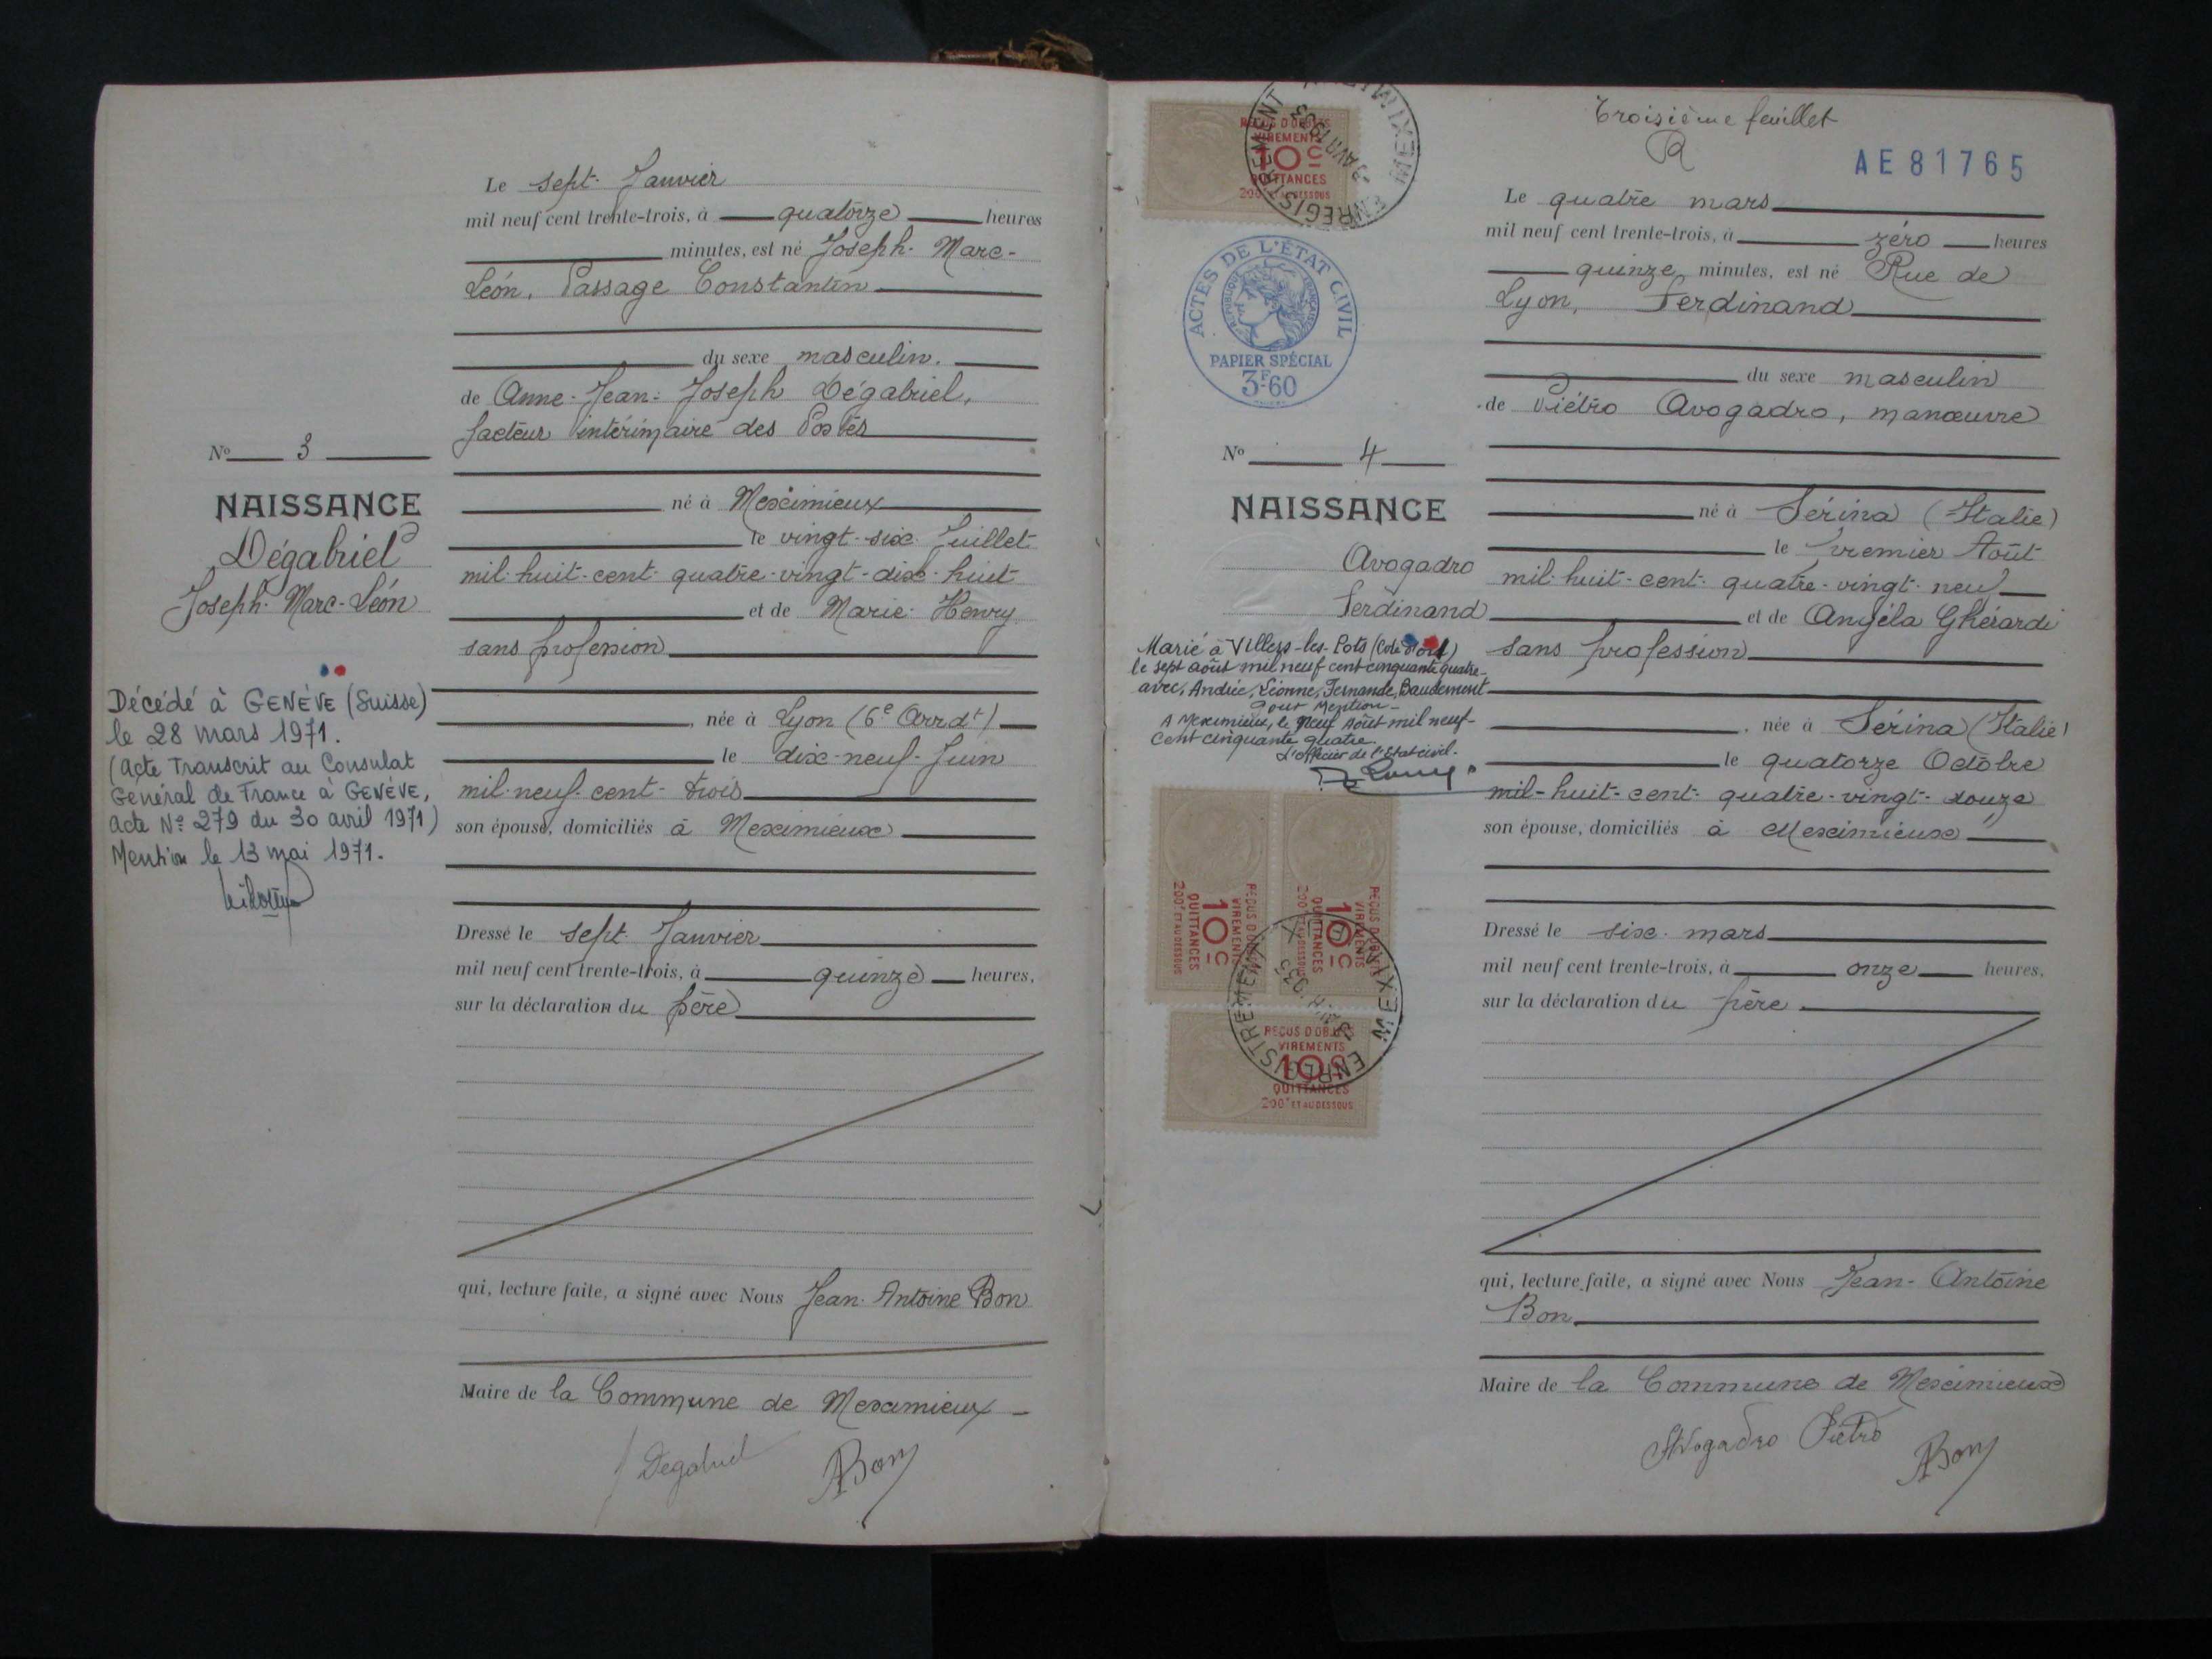 Le sept Janvier
mil neuf cent trente-trois, à quatorze heures
minutes, est né Joseph-Marc-
Léon, Passage Constantin
du sexe masculin.
de Anne-Jean-Joseph Dégabriel,
facteur intérimaire des Postes
né à Meximieux
le vingt-six Juillet
mil-huit-cent-quatre-vingt-dix-huit
et de Marie Henry
sans profession
née à Lyon (6e Arrdt)
le dix-neuf Juin
mil-neuf-cent-trois
son épouse, domiciliés à Meximieux
Dressé le sept Janvier
mil neuf cent trente-trois, à quinze heures,
sur la déclaration du père
qui, lecture faite, a signé avec Nous Jean-Antoine Bon
Maire de la Commune de Meximieux
Degabriel ABon
No 3
NAISSANCE
Dégabriel
Joseph-Marc-Léon
Décédé à GENÈVE (Suisse)
le 28 mars 1971.
(acte Transcrit au Consulat
Général de France à GENÈVE,
acte No 279 du 30 avril 1971)
Mention le 13 mai 1971.
Troisième feuillet
AE 81765
RECUS D'OBJETS
VIREMENTS
10c
QUITTANCES
200F ET AU DESSOUS
ENREGISTREMENT MEXIMIEUX
ACTES DE L'ÉTAT CIVIL
RÉPUBLIQUE FRANÇAISE
PAPIER SPÉCIAL
3F60
No 4
NAISSANCE
Avogadro
Ferdinand
Marié à Villers-les-Pots (Côte d'Or)
le sept août mil neuf cent cinquante quatre
avec, Andrée, Léonne, Fernande, Baudement
Pour Mention-
A Meximieux, le neuf Août mil neuf-
cent cinquante quatre.
L'officier de l'Etat civil.
RECUS D'OBJETS
VIREMENTS
10c
QUITTANCES
200F ET AU DESSOUS
RECUS D'OBJETS
VIREMENTS
10c
QUITTANCES
200F ET AU DESSOUS
RECUS D'OBJETS
VIREMENTS
10c
QUITTANCES
200F ET AU DESSOUS
ENREGISTREMENT MEXIMIEUX
Le quatre mars
mil neuf cent trente-trois, à zéro heures
quinze minutes, est né Rue de
Lyon, Ferdinand
du sexe masculin
de Piétro Avogadro, manœuvre
né à Sérina (Italie)
le Premier Août
mil-huit-cent-quatre-vingt-neuf
et de Angéla Ghérardi
sans profession
née à Sérina (Italie)
le quatorze Octobre
mil-huit-cent-quatre-vingt-douze
son épouse, domiciliés à Meximieux
Dressé le six mars
mil neuf cent trente-trois, à onze heures,
sur la déclaration du père
qui, lecture faite, a signé avec Nous Jean-Antoine
Bon
Maire de la Commune de Meximieux
Avogadro Pietro ABon